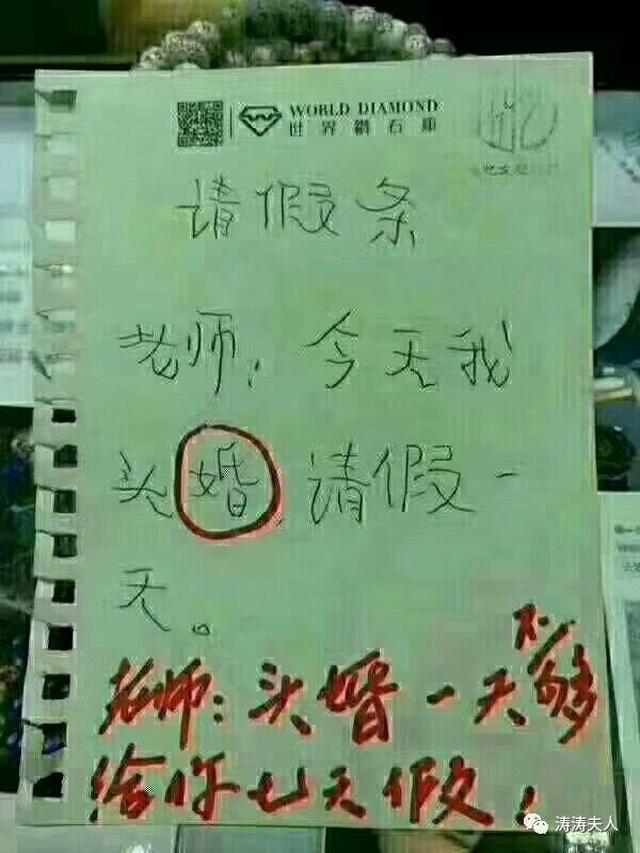 WORLD DIAMOND
世界鑽石廊
请假条
老师:今天我
头婚,请假一
天。
老师:头婚一天不够
给你七天假!
涛涛夫人